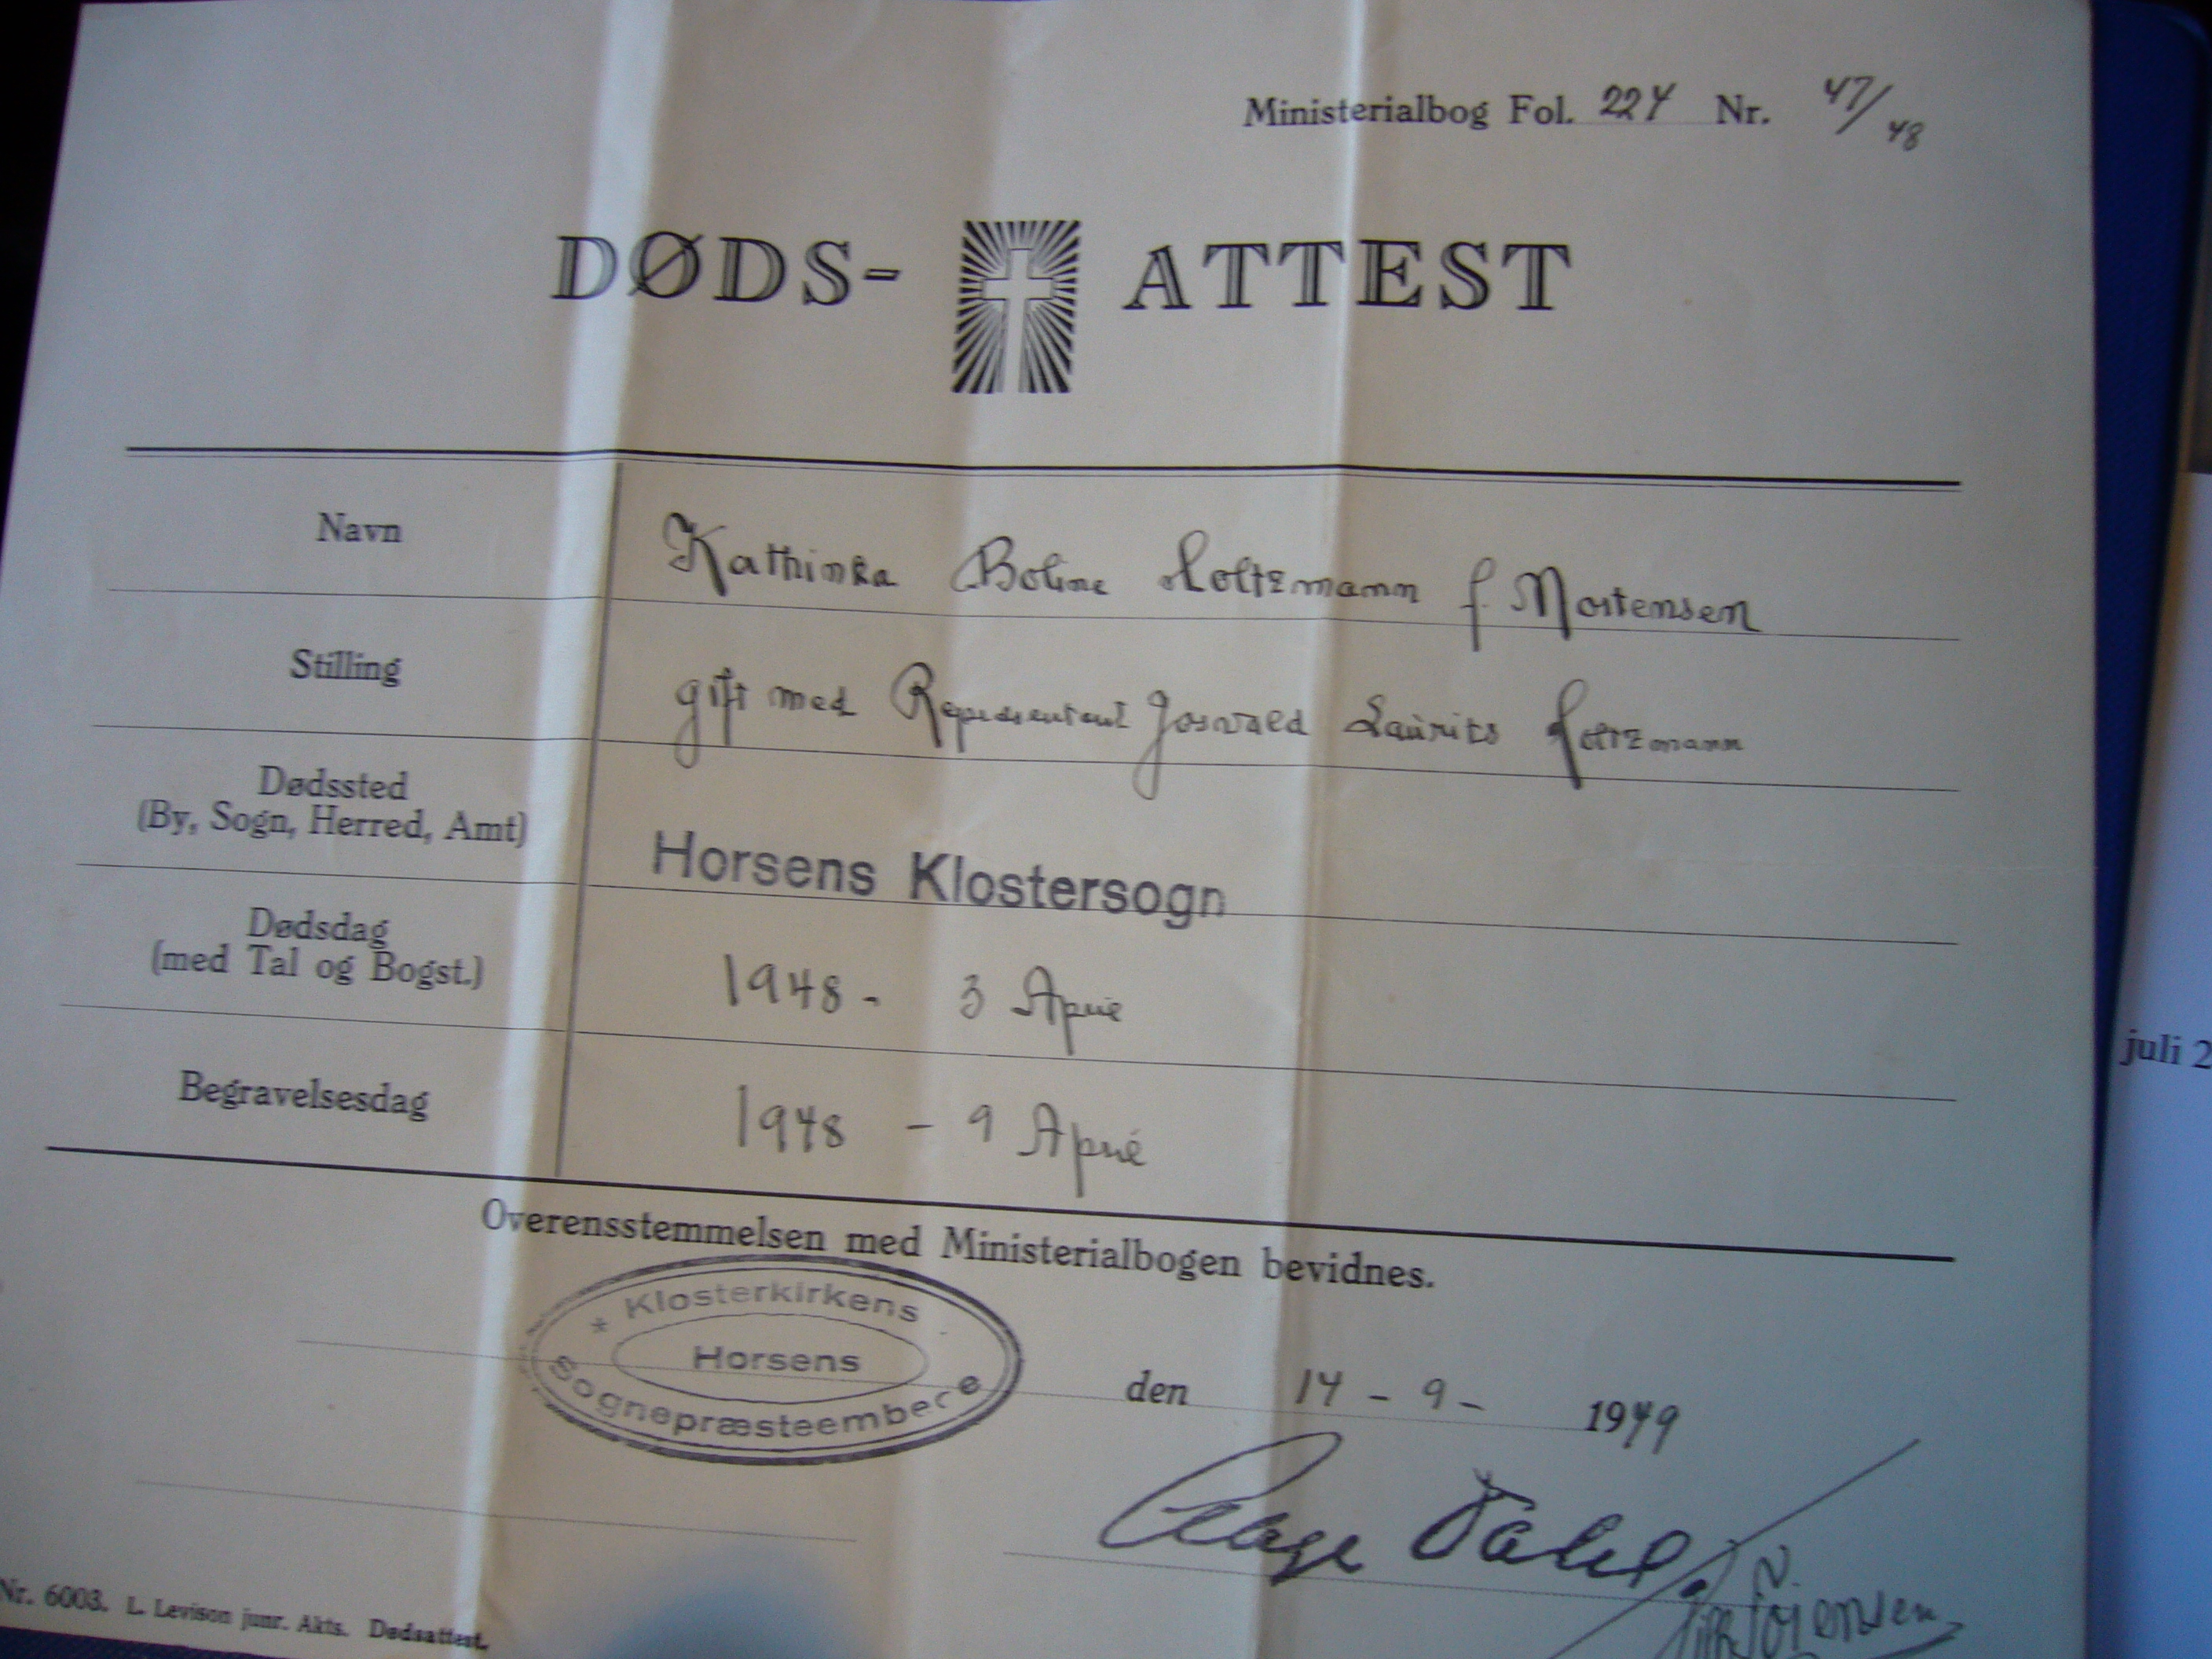 Ministerialbog Fol. 224 Nr. 47/48
DØDS-ATTEST
Navn Kathinka Boline Holtzmann f. Mortensen
Stilling gift med Repræsentant Josvald Laurits Holtzmann
Dødssted
(By, Sogn, Herred, Amt)
Horsens Klostersogn
Dødsdag
(med Tal og Bogst.)
1948 - 3 April
Begravelsesdag 1948 - 9 April
Overensstemmelsen med Ministerialbogen bevidnes.
* Klosterkirkens
Horsens
Sognepræsteembede
den 14 - 9 - 1949
Aage Dahl
Nr. 6003. L. Levison junr. Akts. Dødsattest.
juli 2